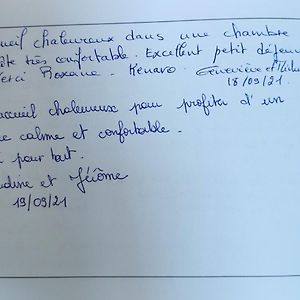 ueil chaleureux dans une chambre
te très confortable. Excellent petit déjeu
erci Roxane. Kenavo. Geneviève et
18/09/21.
accueil chaleureux pour profiter d'un
e calme et confortable.
i pour tout.
udine et Jérôme
19/09/21